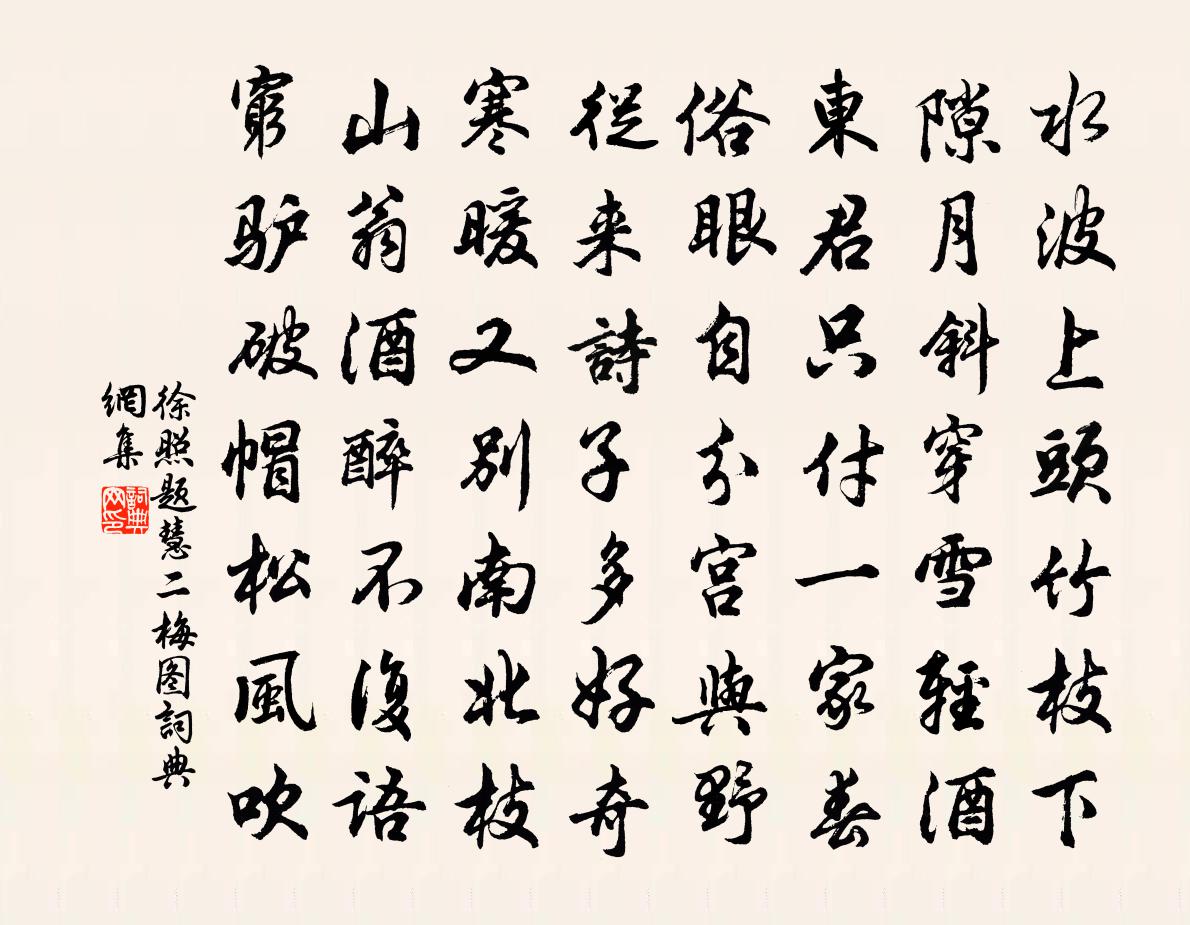 水波上頭竹枝下
隙月斜穿雪輕酒
東君只付一家春
俗眼自分宫與野
從来詩子多好奇
寒暖又別南北枝
山翁酒醉不復語
窮驴破帽松風吹
徐照题慧二梅图詞典
網集
詞典
网印